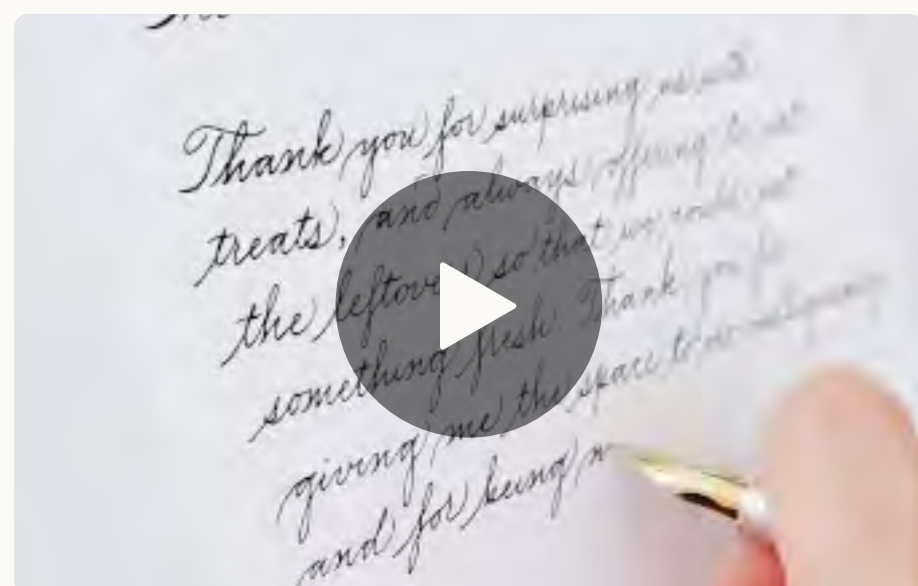 Thank you for surprising us with
treats, and always offering to eat
the leftovers so that we could eat
something fresh. Thank you for
giving me the space to
and for being